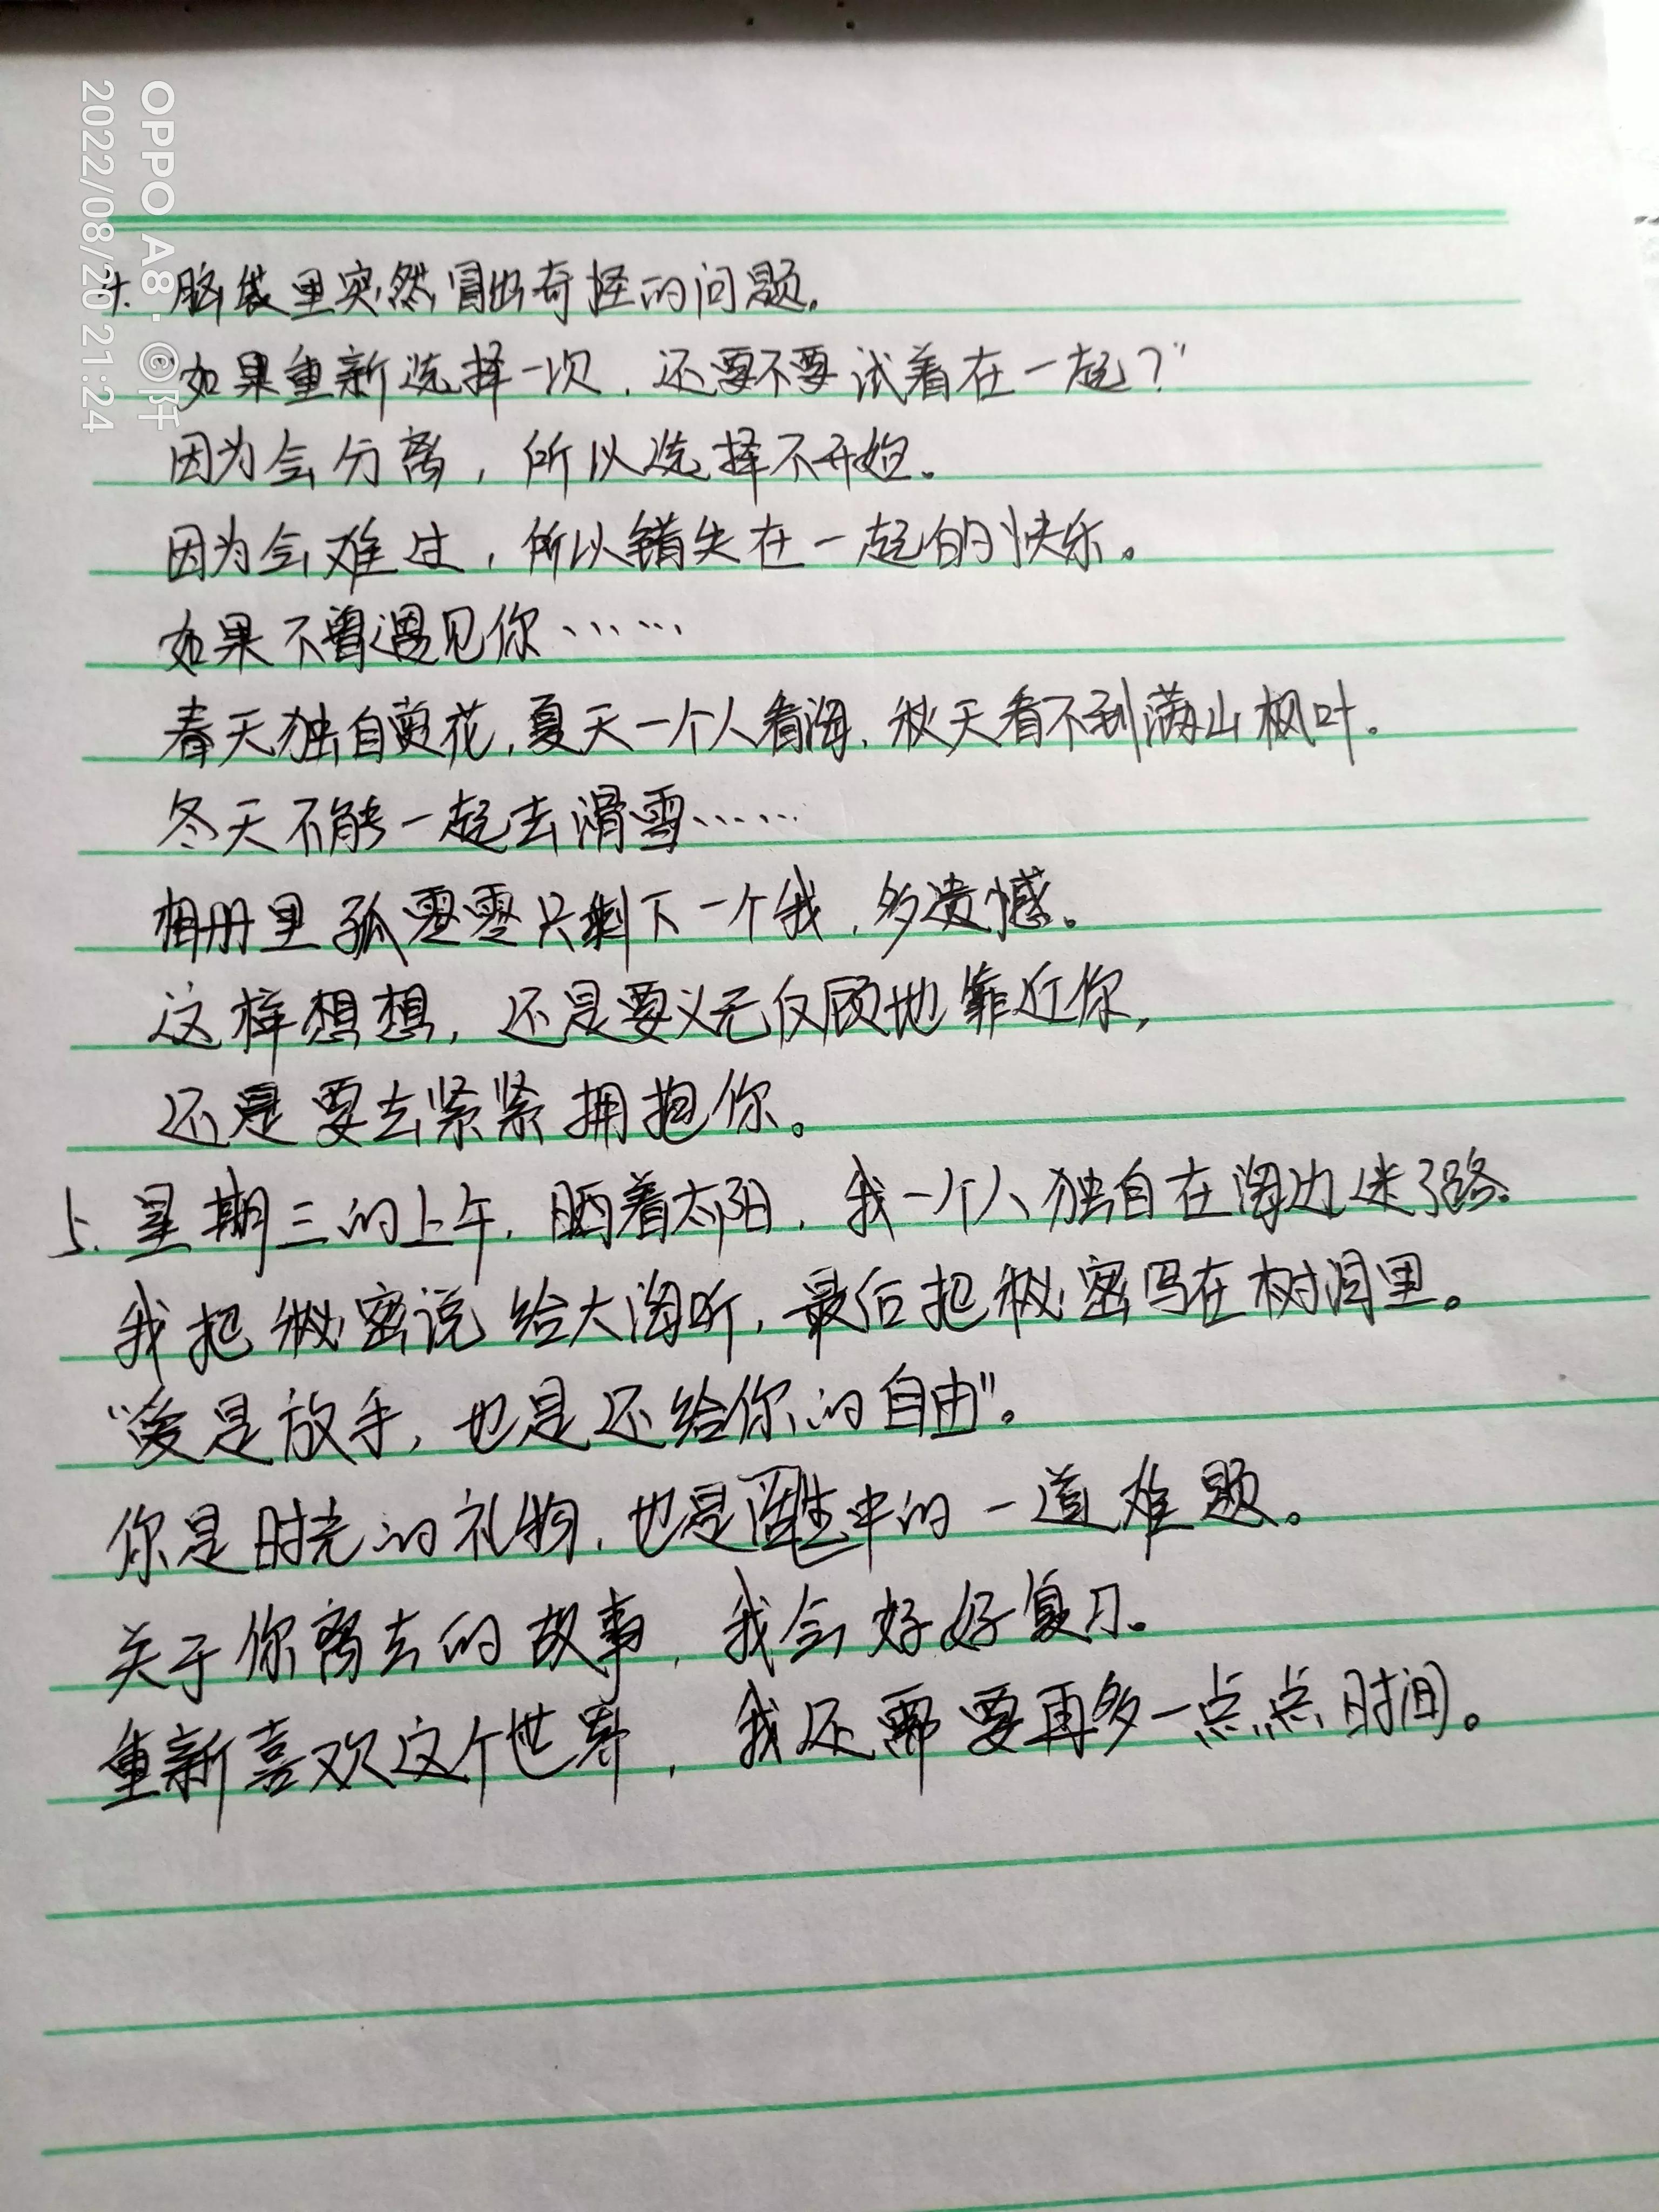 OPPO A8 · ©阡
2022/08/20 21:24
4. 脑袋里突然冒出奇怪的问题。
“如果重新选择一次，还要不要试着在一起？”
因为会分离，所以选择不开始。
因为会难过，所以错失在一起的快乐。
如果不曾遇见你……
春天独自赏花，夏天一个人看海，秋天看不到满山枫叶。
冬天不能一起去滑雪……
相册里孤零零只剩下一个我，多遗憾。
这样想想，还是要义无反顾地靠近你，
还是要去紧紧拥抱你。
5. 星期三的上午，晒着太阳，我一个人独自在海边迷了路。
我把秘密说给大海听，最后把秘密写在树洞里。
“爱是放手，也是还给你的自由”。
你是时光的礼物，也是中的一道难题。
关于你离去的故事，我会好好复习。
重新喜欢这个世界，我还需要再多一点点时间。